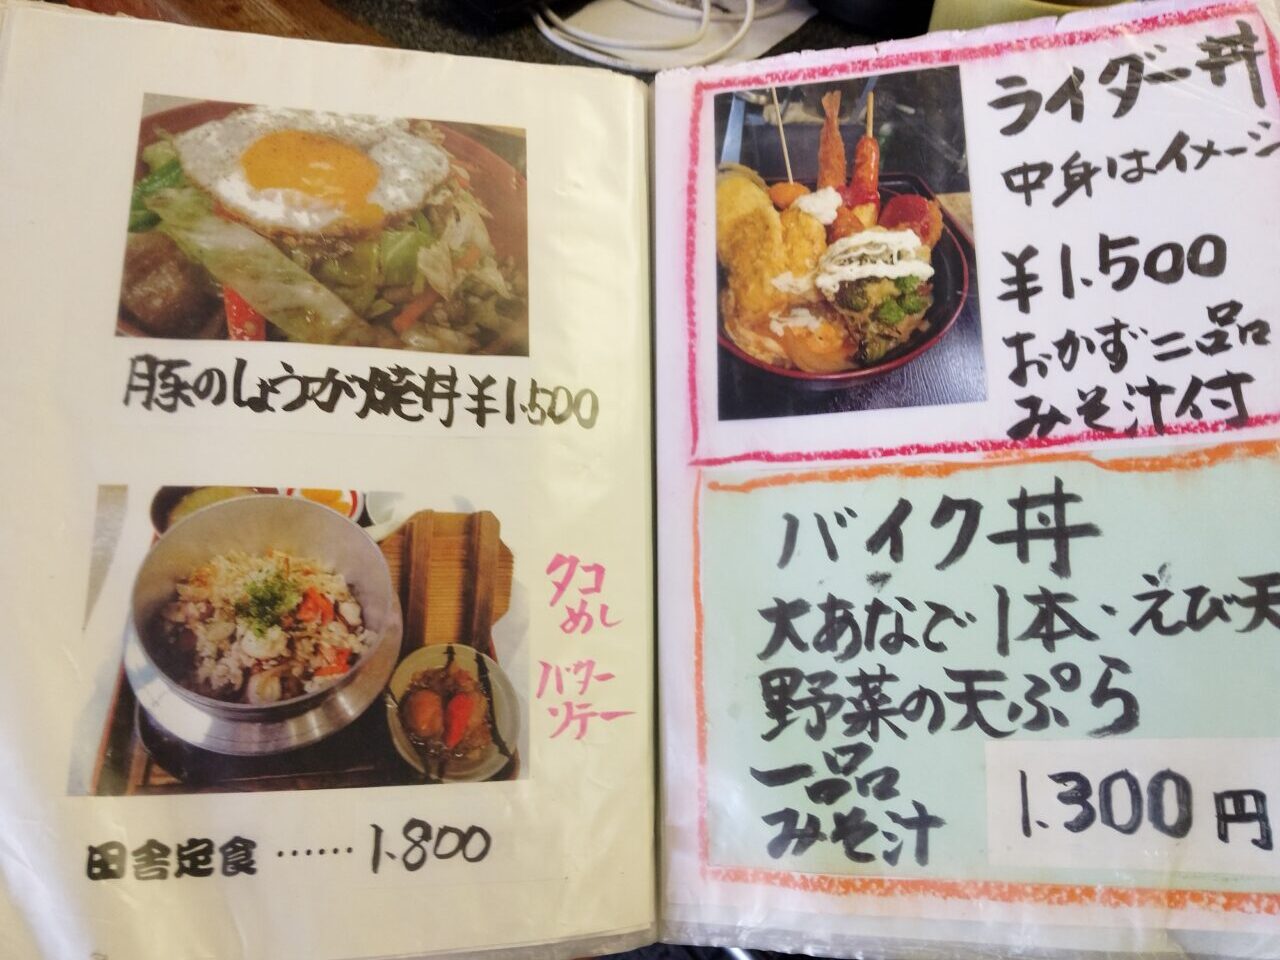 豚のしょうが焼丼¥1.500
タコ
めし
バター
ソテー
田舎定食……1.800
ライダー丼
中身はイメージ
¥1.500
おかず二品
みそ汁付
バイク丼
大あなご1本・えび天
野菜の天ぷら
一品
みそ汁
1.300円